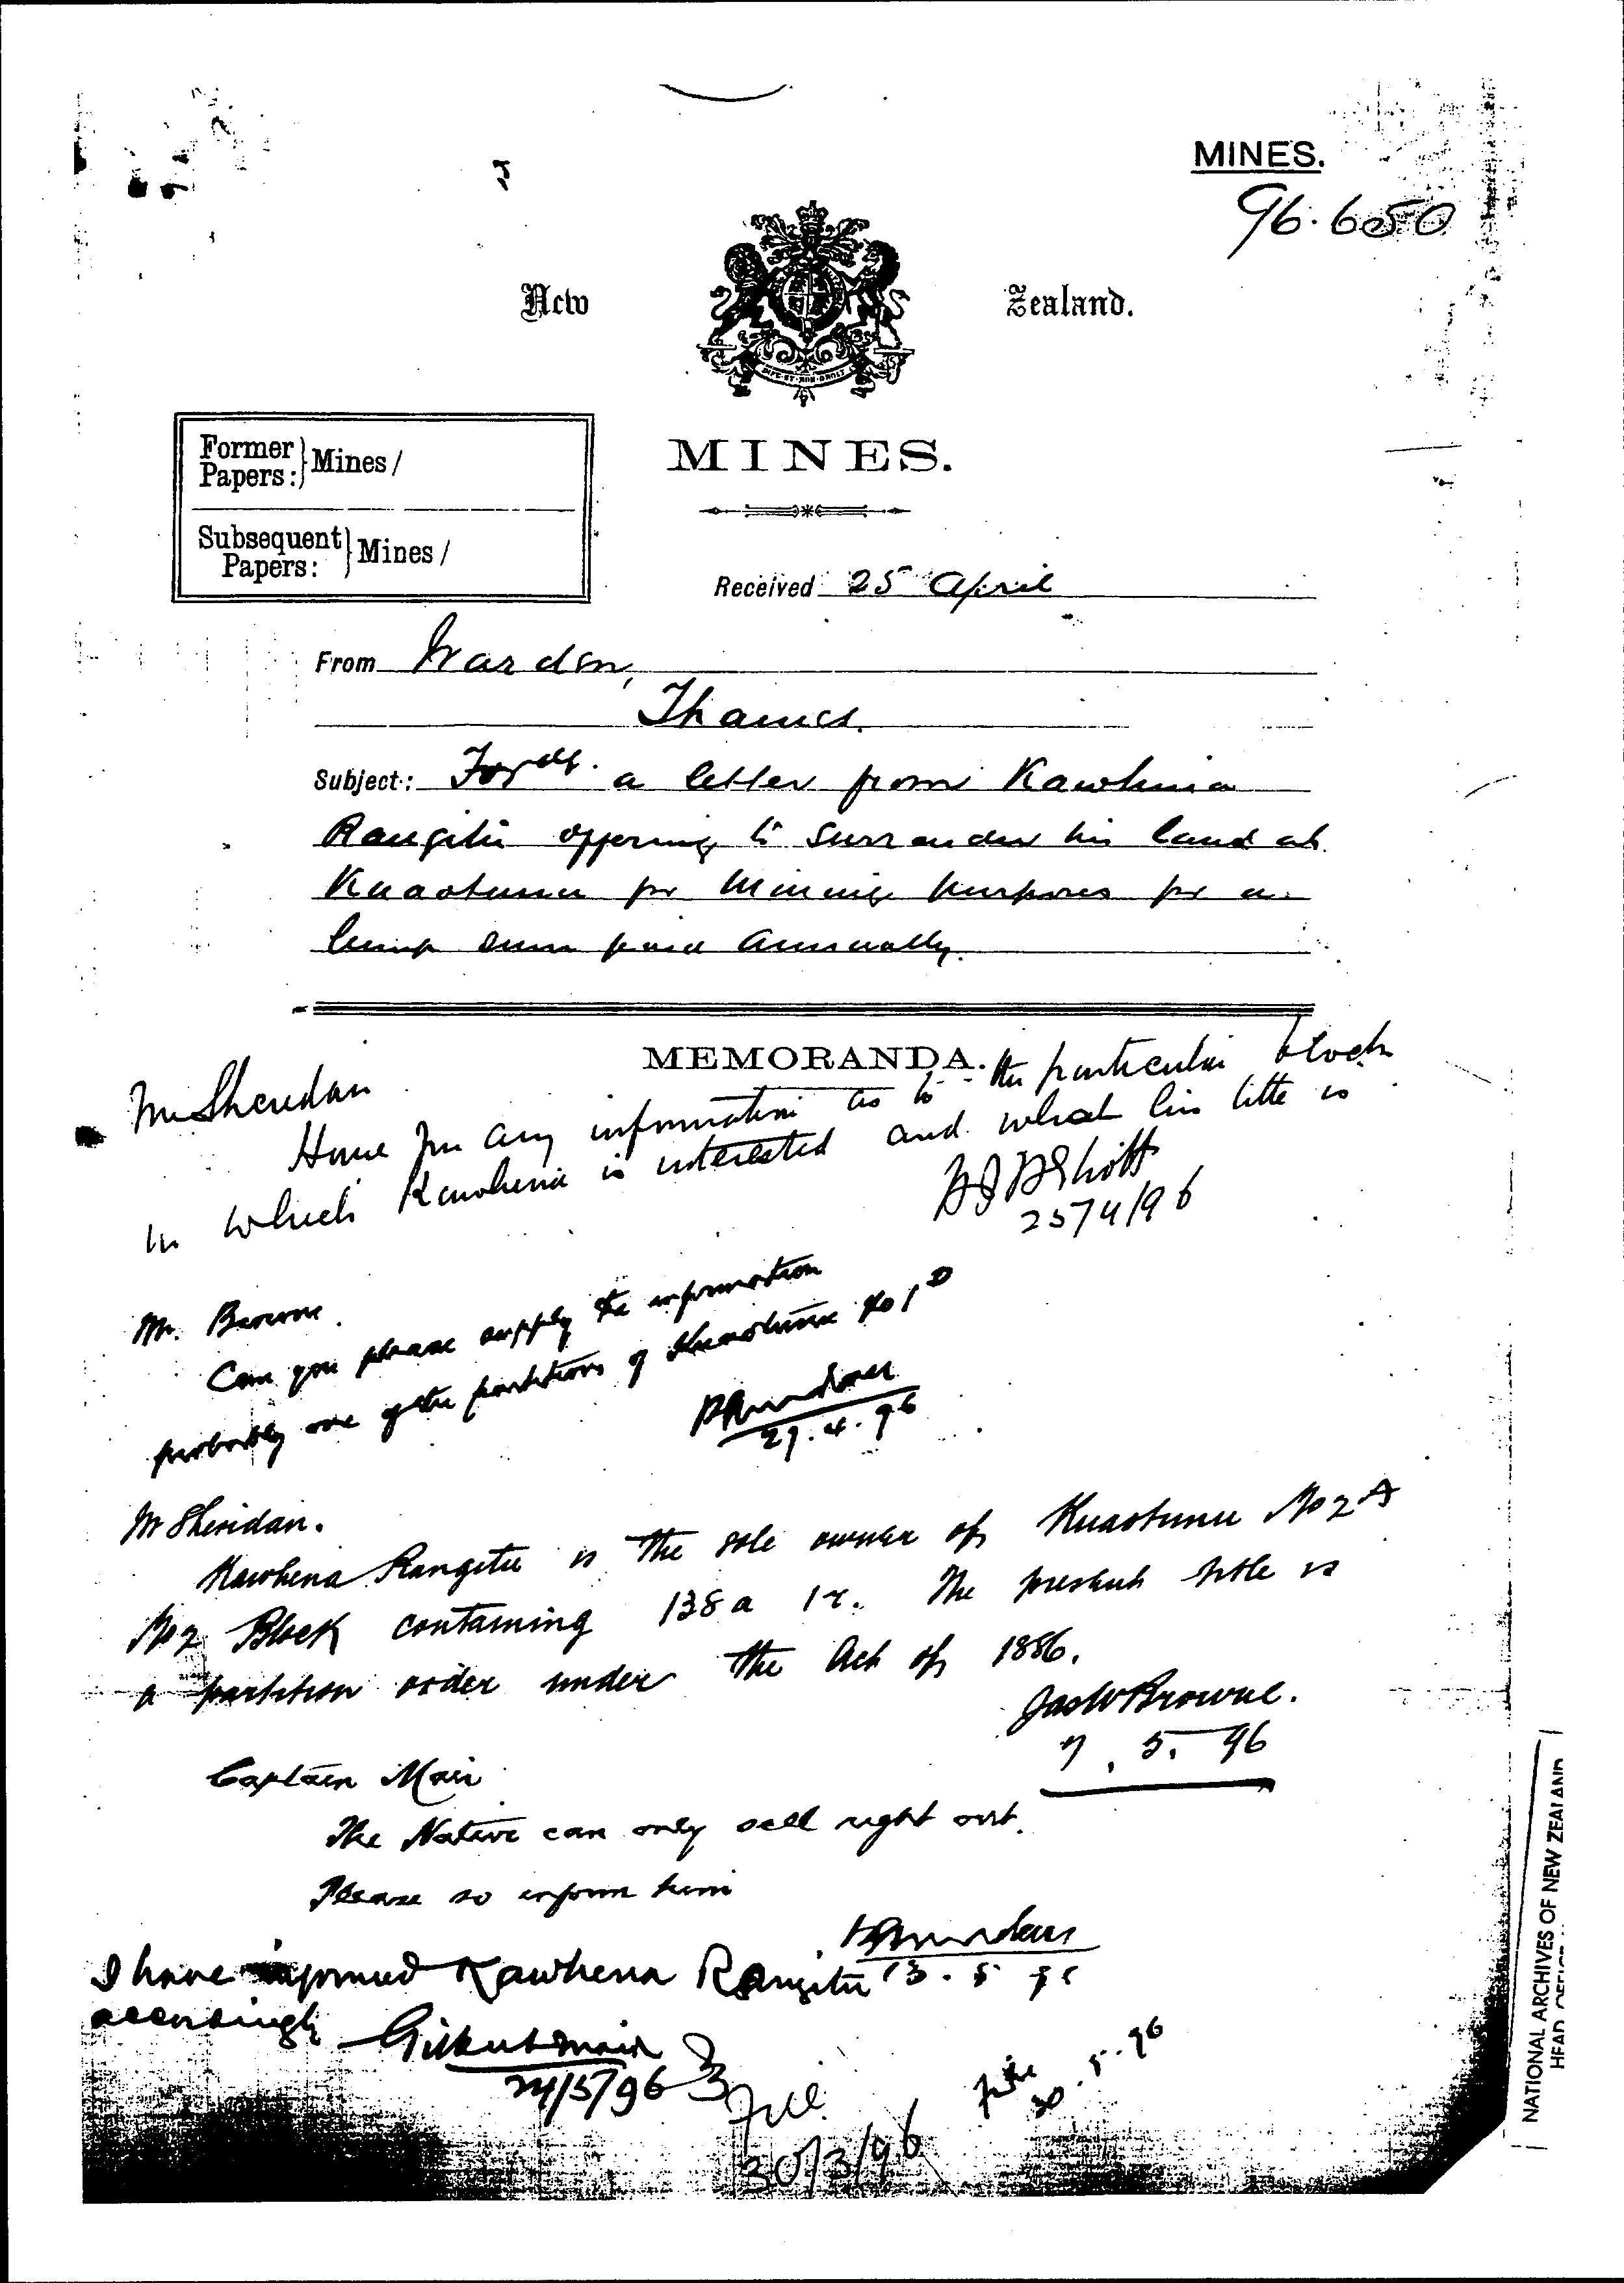 MINES.
96.650
New Zealand.
DIEU·ET·MON·DROIT
Former Papers: } Mines /
MINES.
Subsequent Papers: } Mines /
Received 25 April
From Warden,
Thames.
Subject: Fordg. a letter from Kawhena
Rangitu offering to surrender his land at
Kuaotunu for mining purposes for a
lump sum paid annually.
MEMORANDA.
Mr Sheridan
Have you any information as to the particular block
in which Kawhena is interested and what his title is
25/4/96
Mr. Browne.
Can you please supply the information
probably one of the partitions of Kuaotunu No 1 D
P Sheridan
29.4.96
Mr Sheridan.
Kawhena Rangitu is the sole owner of Kuaotunu No 2 A
No 2 Block containing 138a 1r. The present title is
a partition order under the Act of 1886.
Jas W Browne.
7.5.96
Captain Mair
The Native can only sell right out.
Please so inform him
P Sheridan
13.5.96
I have informed Kawhena Rangitu
accordingly
Gilbert Mair
24/5/96
File
30.5.96
File
30/3/96
NATIONAL ARCHIVES OF NEW ZEALAND
HEAD OFFICE